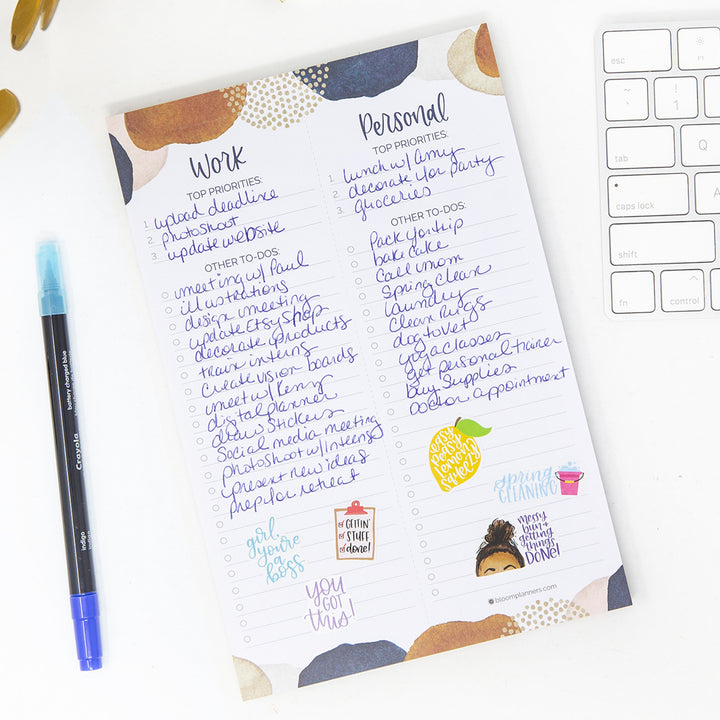 Work
TOP PRIORITIES:
1. upload deadline
2. photoshoot
3. update website
OTHER TO-DOS:
meeting w/ Paul
illustrations
design meeting
update Etsy shop
decorate products
train interns
create vision boards
meet w/ Kenny
digital planner
draw stickers
Social media meeting
photoshoot w/ interns
present new ideas
prep for retreat
girl,
you're
a
boss
GETTIN'
STUFF
done!
YOU
GOT
this!
Personal
TOP PRIORITIES:
1. lunch w/ Amy
2. decorate for party
3. groceries
OTHER TO-DOS:
Pack for trip
bake cake
Call mom
Spring clean
laundry
Clean rugs
dog to vet
yoga classes
get personal trainer
Buy Supplies
Doctor appointment
easy
peasy
lemon
squeezy
spring
CLEANING
messy
bun +
getting
things
DONE!
bloomplanners.com
battery charged blue
Crayola
indigo
esc
~
`
!
1
tab
Q
caps lock
A
shift
fn
control